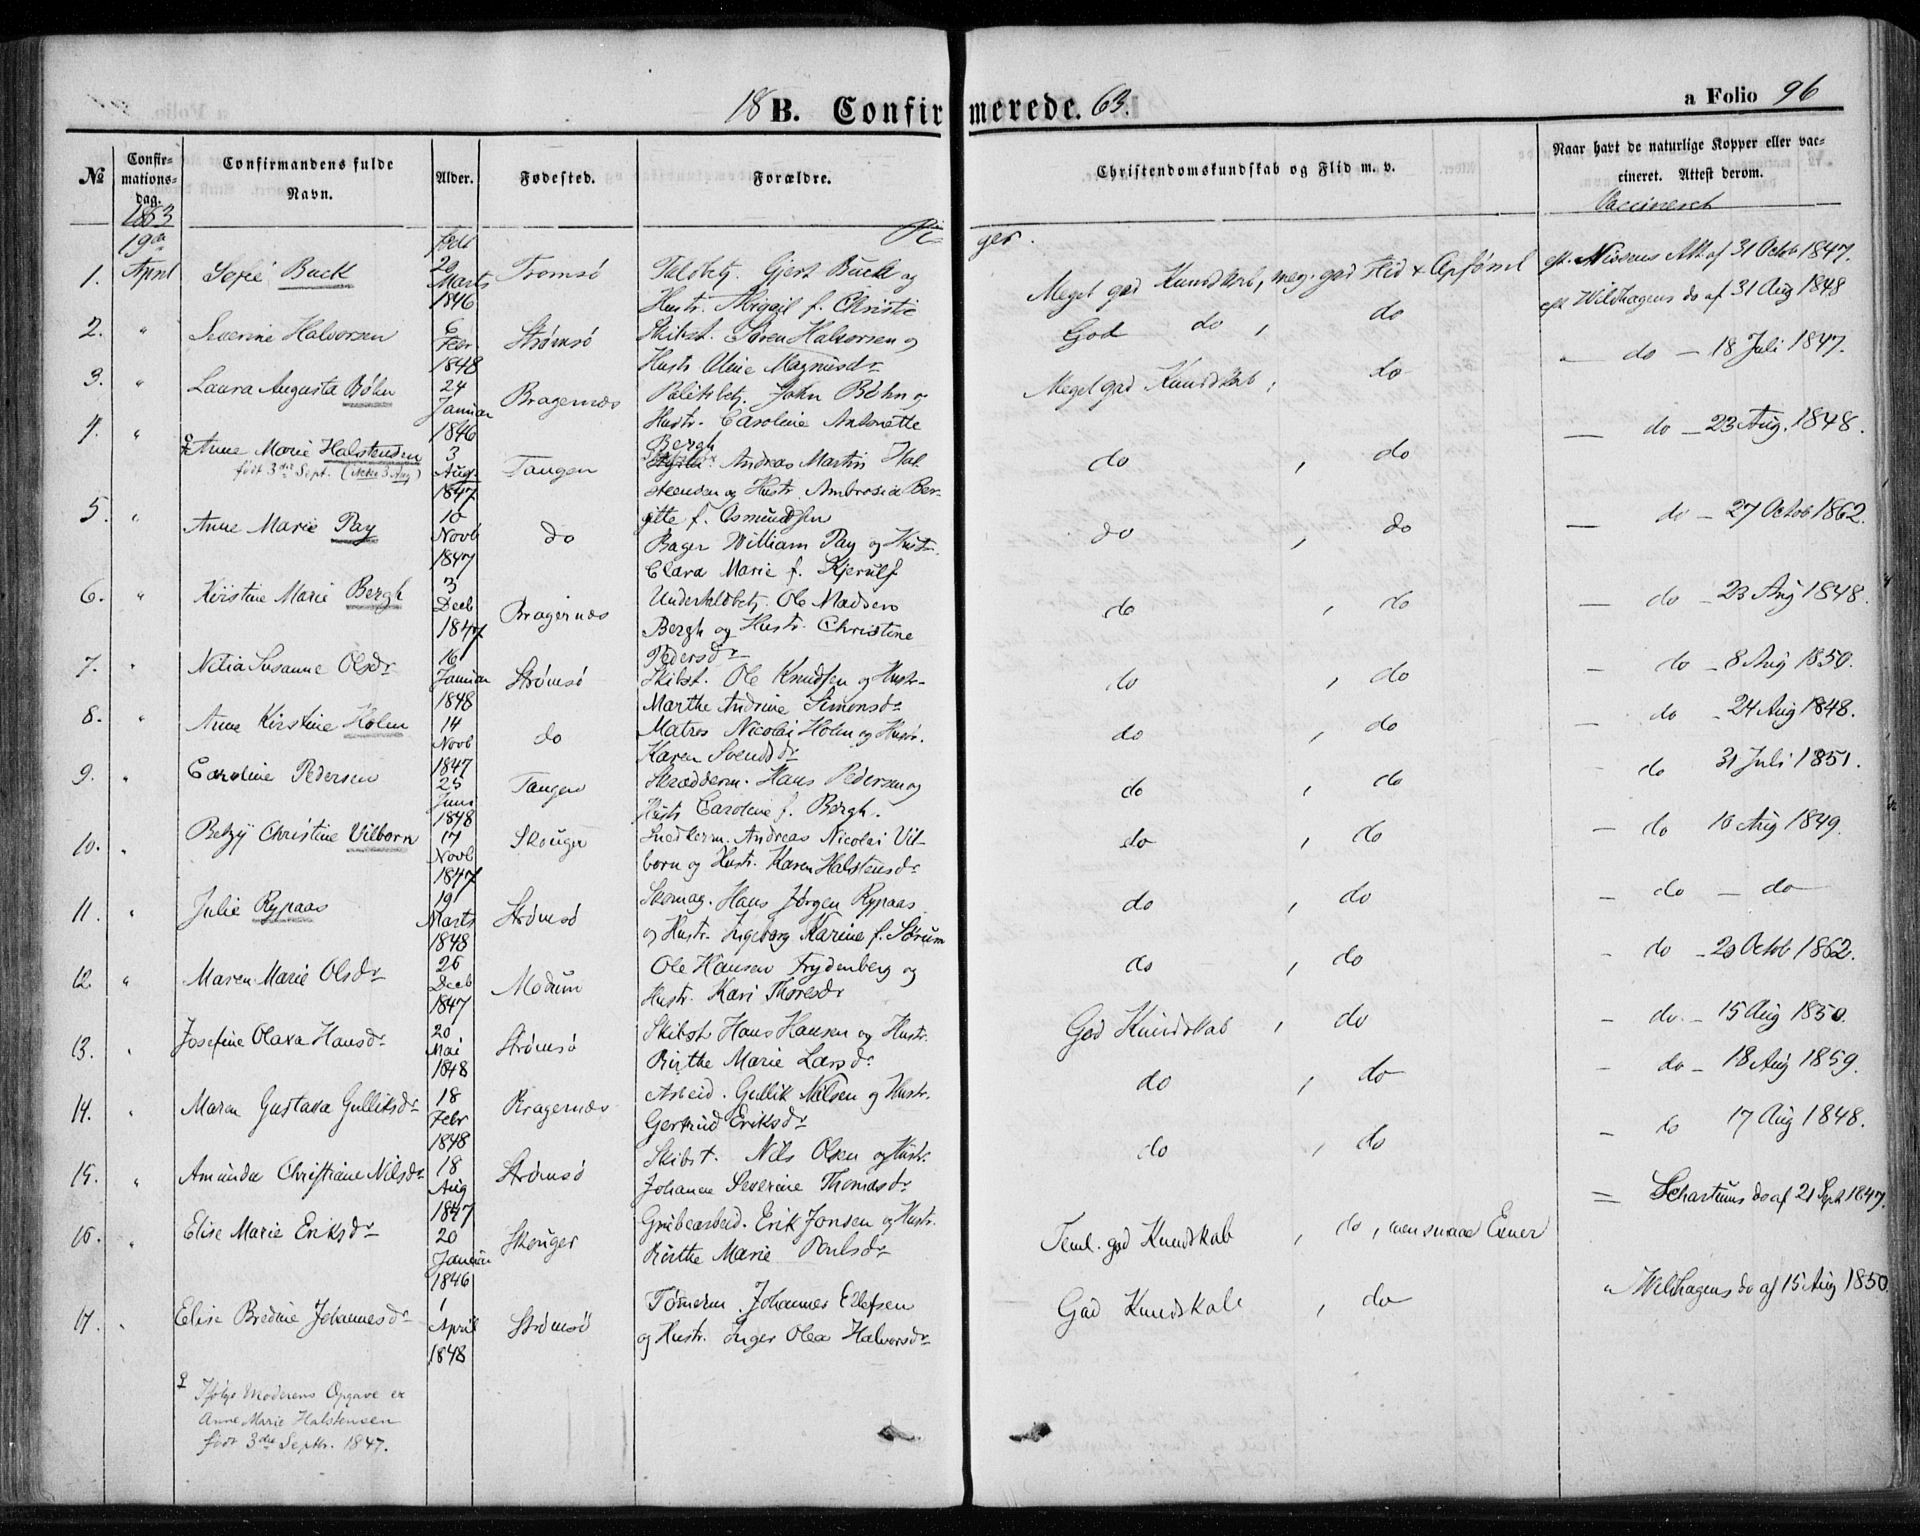 18 B. Confirmerede. 63.
a Folio 96
№
Confirmationsdag.
Confirmandens fulde Navn.
Alder.
Fødested.
Forældre.
Christendomskundskab og Flid m. v.
Naar havt de naturlige Kopper eller vaccineret. Attest derom.
1863
19de
født
Piger.
Vaccineret
1. April Sofie Buck 20 Marts 1846 Tromsø Toldbetj. Gjert Buck og
Hustr. Abigail f. Christie
Meget god Kundskab, meg. god Flid & Opførsel
eft. Nissens Att. af 31 Octob 1847.
2. " Severine Halvorsen 6 Febr 1848 Strømsø Skibst. Søren Halvorsen og
Hustr Oline Magnusdr
God do, do
eft Wildhagens do af 31 Aug 1848
3. " Laura Augusta Bøhn 24 Januar 1846 Bragernæs Politibetj. John Bøhn og
Hustr. Caroline Antonette
Bergh
Meget god Kundskab, do
— do — 18 Juli 1847.
4. " ♀ Anne Marie Halstensen 3 Aug 1847 Tangen Andreas Martin Hal
født 3die Sept. (ikke 3 Aug)
steensen og Hustr. Ambrosia Ber-
gitte f. Osmundsen
do, do
— do — 23 Aug. 1848.
5. " Anne Marie Pay 10 Novb 1847 do Bager William Pay og Hustr.
Clara Marie f. Kjerulf
do, do
— do — 27 Octob 1862.
6. " Kirstine Marie Bergh 3 Decb 1847 Bragernæs Undertoldbetj. Ole Madsen
Bergh og Hustr. Christine
Pedersdr
do, do
— do — 23 Aug 1848.
7. " Nilia Susanne Olsdr 16 Januar 1848 Strømsø Skibst. Ole Knudsen og Hustr.
Marthe Andrine Simonsdr
do, do
— do — 8 Aug 1850.
8. " Anne Kirstine Holm 14 Novb 1847 do Matros Nicolai Holm og Hustr.
Karen Svendsdr
do, do
— do — 24 Aug 1848.
9. " Caroline Pedersen 25 Juni 1848 Tangen Skrædderm. Hans Pedersen og
Hustr Caroline f. Bergh.
do, do
— do 31 Juli 1851.
10. " Betzy Christine Vilborn 17 Novb 1847 Skouger Snedkerm. Andreas Nicolai Vil-
born og Hustr. Karen Halstensdr
do, do
— do 10 Aug 1849.
11. " Julie Rypaas 19 Marts 1848 Strømsø Skomag. Hans Jørgen Rypaas
og Hustr. Ingeborg Karine f. Sørum
do, do
— do — do
12. " Maren Marie Olsdr 26 Decb 1847 Modum Ole Hansen Frydenberg og
Hustr. Kari Thoresdr
do, do
— do — 20 Octob 1862.
13. " Josefine Olava Hansdr 20 Mai 1848 Strømsø Skibst Hans Hansen og Hustr.
Birthe Marie Larsdr
God Kundskab, do
— do — 15 Aug 1850.
14. " Maren Gustava Gulliksdr 18 Febr 1848 Bragernæs Arbeid. Gullik Nilsen og Hustr.
Gertrud Eriksdr
do, do
— do — 18 Aug 1859.
15. " Amunda Christiane Nilsdr 18 Aug 1847 Strømsø Skibst. Nils Olsen og Hustr.
Johanne Severine Thomasdr
do, do
— do 17 Aug 1848.
16. " Elise Marie Eriksdr 20 Januar 1846 Skouger Grubearbeid. Erik Jonsen og Hustr.
Birthe Marie Poulsdr
Teml. god Kundskab, do, men smaae Evner
— Schartums do af 21 Sept 1847.
17. " Elise Bredine Johannesdr 1 April 1848 Strømsø Tømerm. Johannes Ellefsen
og Hustr. Inger Olea Halvorsdr
God Kundskab, do
" Wildhagens do af 15 Aug 1850
♀ Ifølge Moderens Opgave er
Anne Marie Halstensen
født 3die Septbr. 1847.